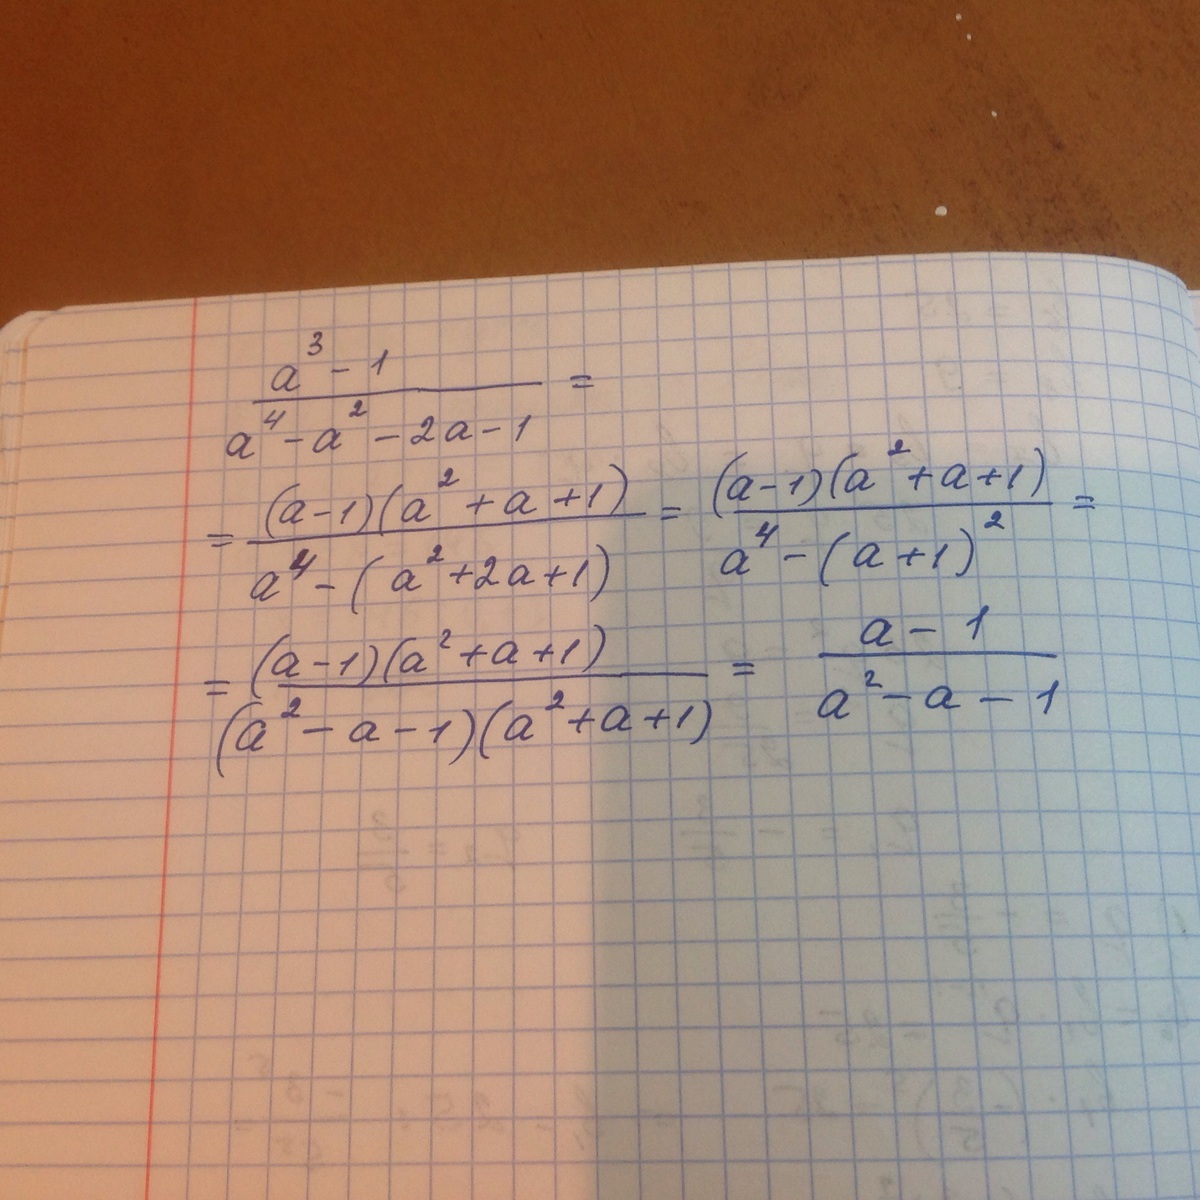 a³ - 1
a⁴ - a² - 2a - 1 =
= (a-1)(a² + a + 1) / a⁴ - (a² + 2a + 1) = (a-1)(a² + a + 1) / a⁴ - (a + 1)² =
= (a-1)(a² + a + 1) / (a² - a - 1)(a² + a + 1) = a - 1 / a² - a - 1